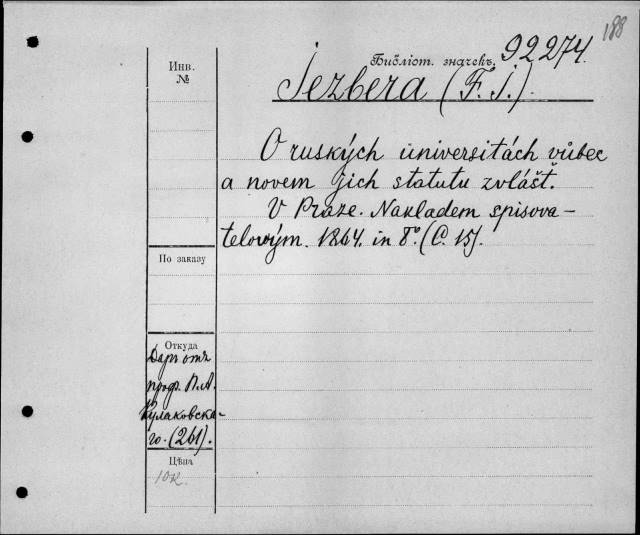 188
Инв. №
Библіот. значекъ. 92274.
Jezbera (F. J.).
O ruských universitách vůbec
a novem jich statutu zvlášť.
V Praze. Nakladem spisova-
telovým. 1864. in 8º. (C. 15).
По заказу
Откуда
Даръ отъ
проф. П. А.
Кулаковска-
го. (261).
Цѣна
10к.